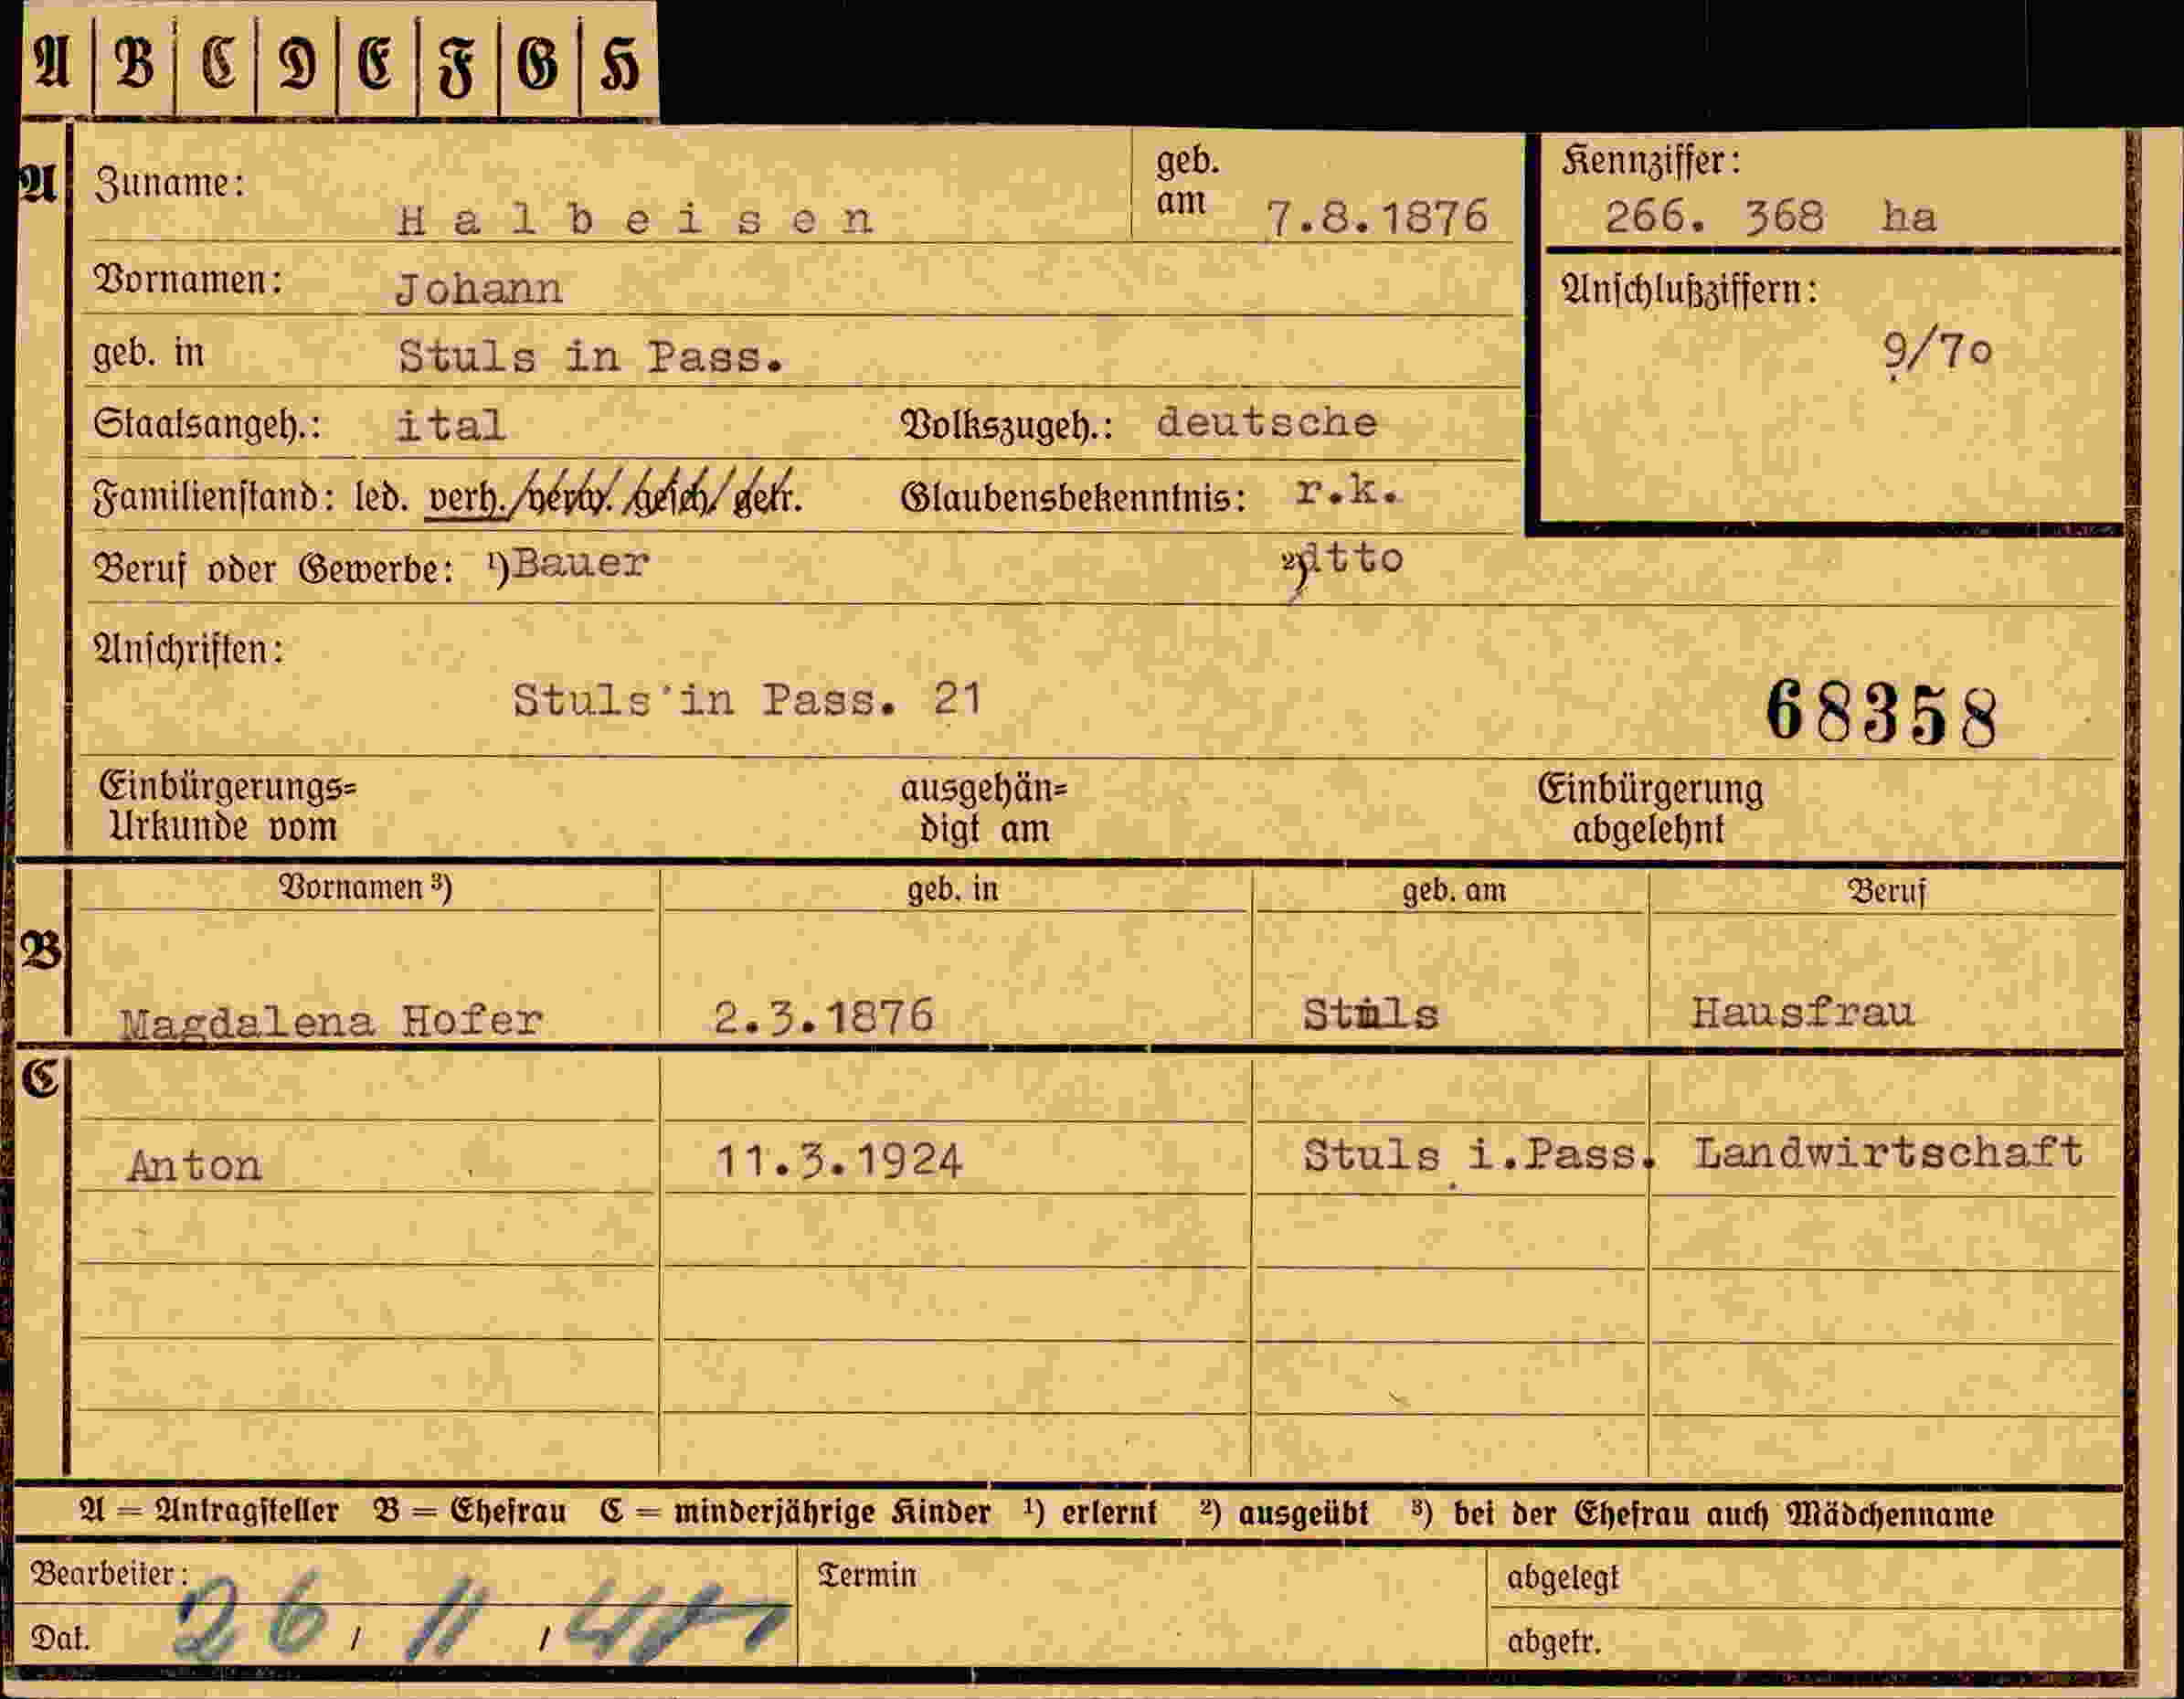 A B C D E F G H
A
Zuname: Halbeisen
geb. am 7.8.1876
Kennziffer:
266. 368 ha
Vornamen: Johann
Anschlußziffern:
9/70
geb. in Stuls in Pass.
Staatsangeh.: ital Volkszugeh.: deutsche
Familienstand: led. verh. / verw. / gesch / getr. Glaubensbekenntnis: r.k.
Beruf oder Gewerbe: ¹) Bauer ²) dtto
Anschriften:
Stuls in Pass. 21
68358
Einbürgerungs=
Urkunde vom
ausgehän=
digt am
Einbürgerung
abgelehnt
B
Vornamen ³) geb. in geb. am Beruf
Magdalena Hofer 2.3.1876 Stuls Hausfrau
C
Anton 11.3.1924 Stuls i.Pass. Landwirtschaft
A = Antragsteller B = Ehefrau C = minderjährige Kinder ¹) erlernt ²) ausgeübt ³) bei der Ehefrau auch Mädchenname
Bearbeiter: Termin abgelegt
Dat. 26 / 11 / abgetr.